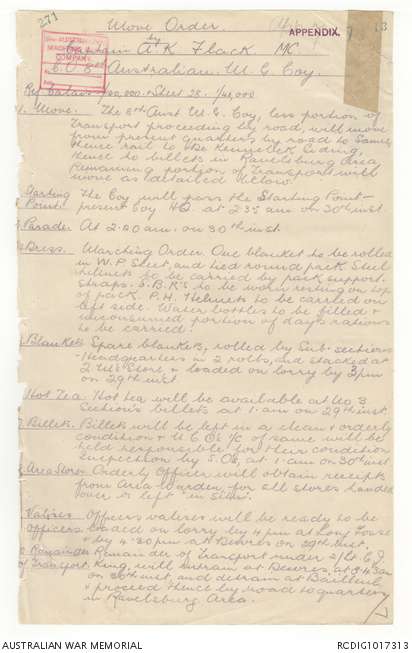 271
Move Order.
APPENDIX.
13
by
Captain A K Flack MC.
MACHINE GUN
COMPANY
C.O 8th Australian. M. G. Coy
Sheet 28 - 1/40,000
1. Move. The 8th Aust M. G. Coy, less portion of
Transport proceeding by road, will move
from present quarters by road to Samer
thence rail to Siding,
thence to billets in Ravelsburg Area
Remaining portion of Transport will
move as detailed below.
Starting Point. The Coy will pass the Starting Point -
present Coy HQ at 2.35 am on 30th inst
Parade At 2.20 am. on 30th inst
Dress. Marching Order. One blanket to be rolled
in W.P. Sheet, and tied round pack Steel
helmets to be carried by pack support.
straps. S.B.R's to be worn resting on top
of pack. P.H. Helmets to be carried on
left side. Water bottles to be filled &
unconsumed portion of days rations
to be carried.
Blankets Spare blankets, rolled by Sub-sections
- Headquarters in 2 rolls, and stacked at
Q.M's Store & loaded on lorry by 3 pm
on 29th inst.
Hot Tea. Hot tea will be available at No 3
Section's billets at 1. am on 29th inst.
Billets. Billets will be left in a clean & orderly
condition & N.C.O's i/c of same will be
held responsible for their condition
Inspection by S.O's, at 1 am on 30th inst
Area Stores Orderly Officer will obtain receipts
from Area Warden for all stores handed
over or left "in situ".
Valises Officers valises will be ready to be
Officers. loaded on lorry by 4 pm at Long Fosse
& by 4.30 pm at Desvres on 29th inst.
Remainder Remainder of Transport under 2/Lt E J
of Transport. King, will entrain at Desvres at 3.43 am
on 30th inst, and detrain at Bailleul
& proceed thence by road to quarters
in Ravelsburg Area.
AUSTRALIAN WAR MEMORIAL
RCDIG1017313